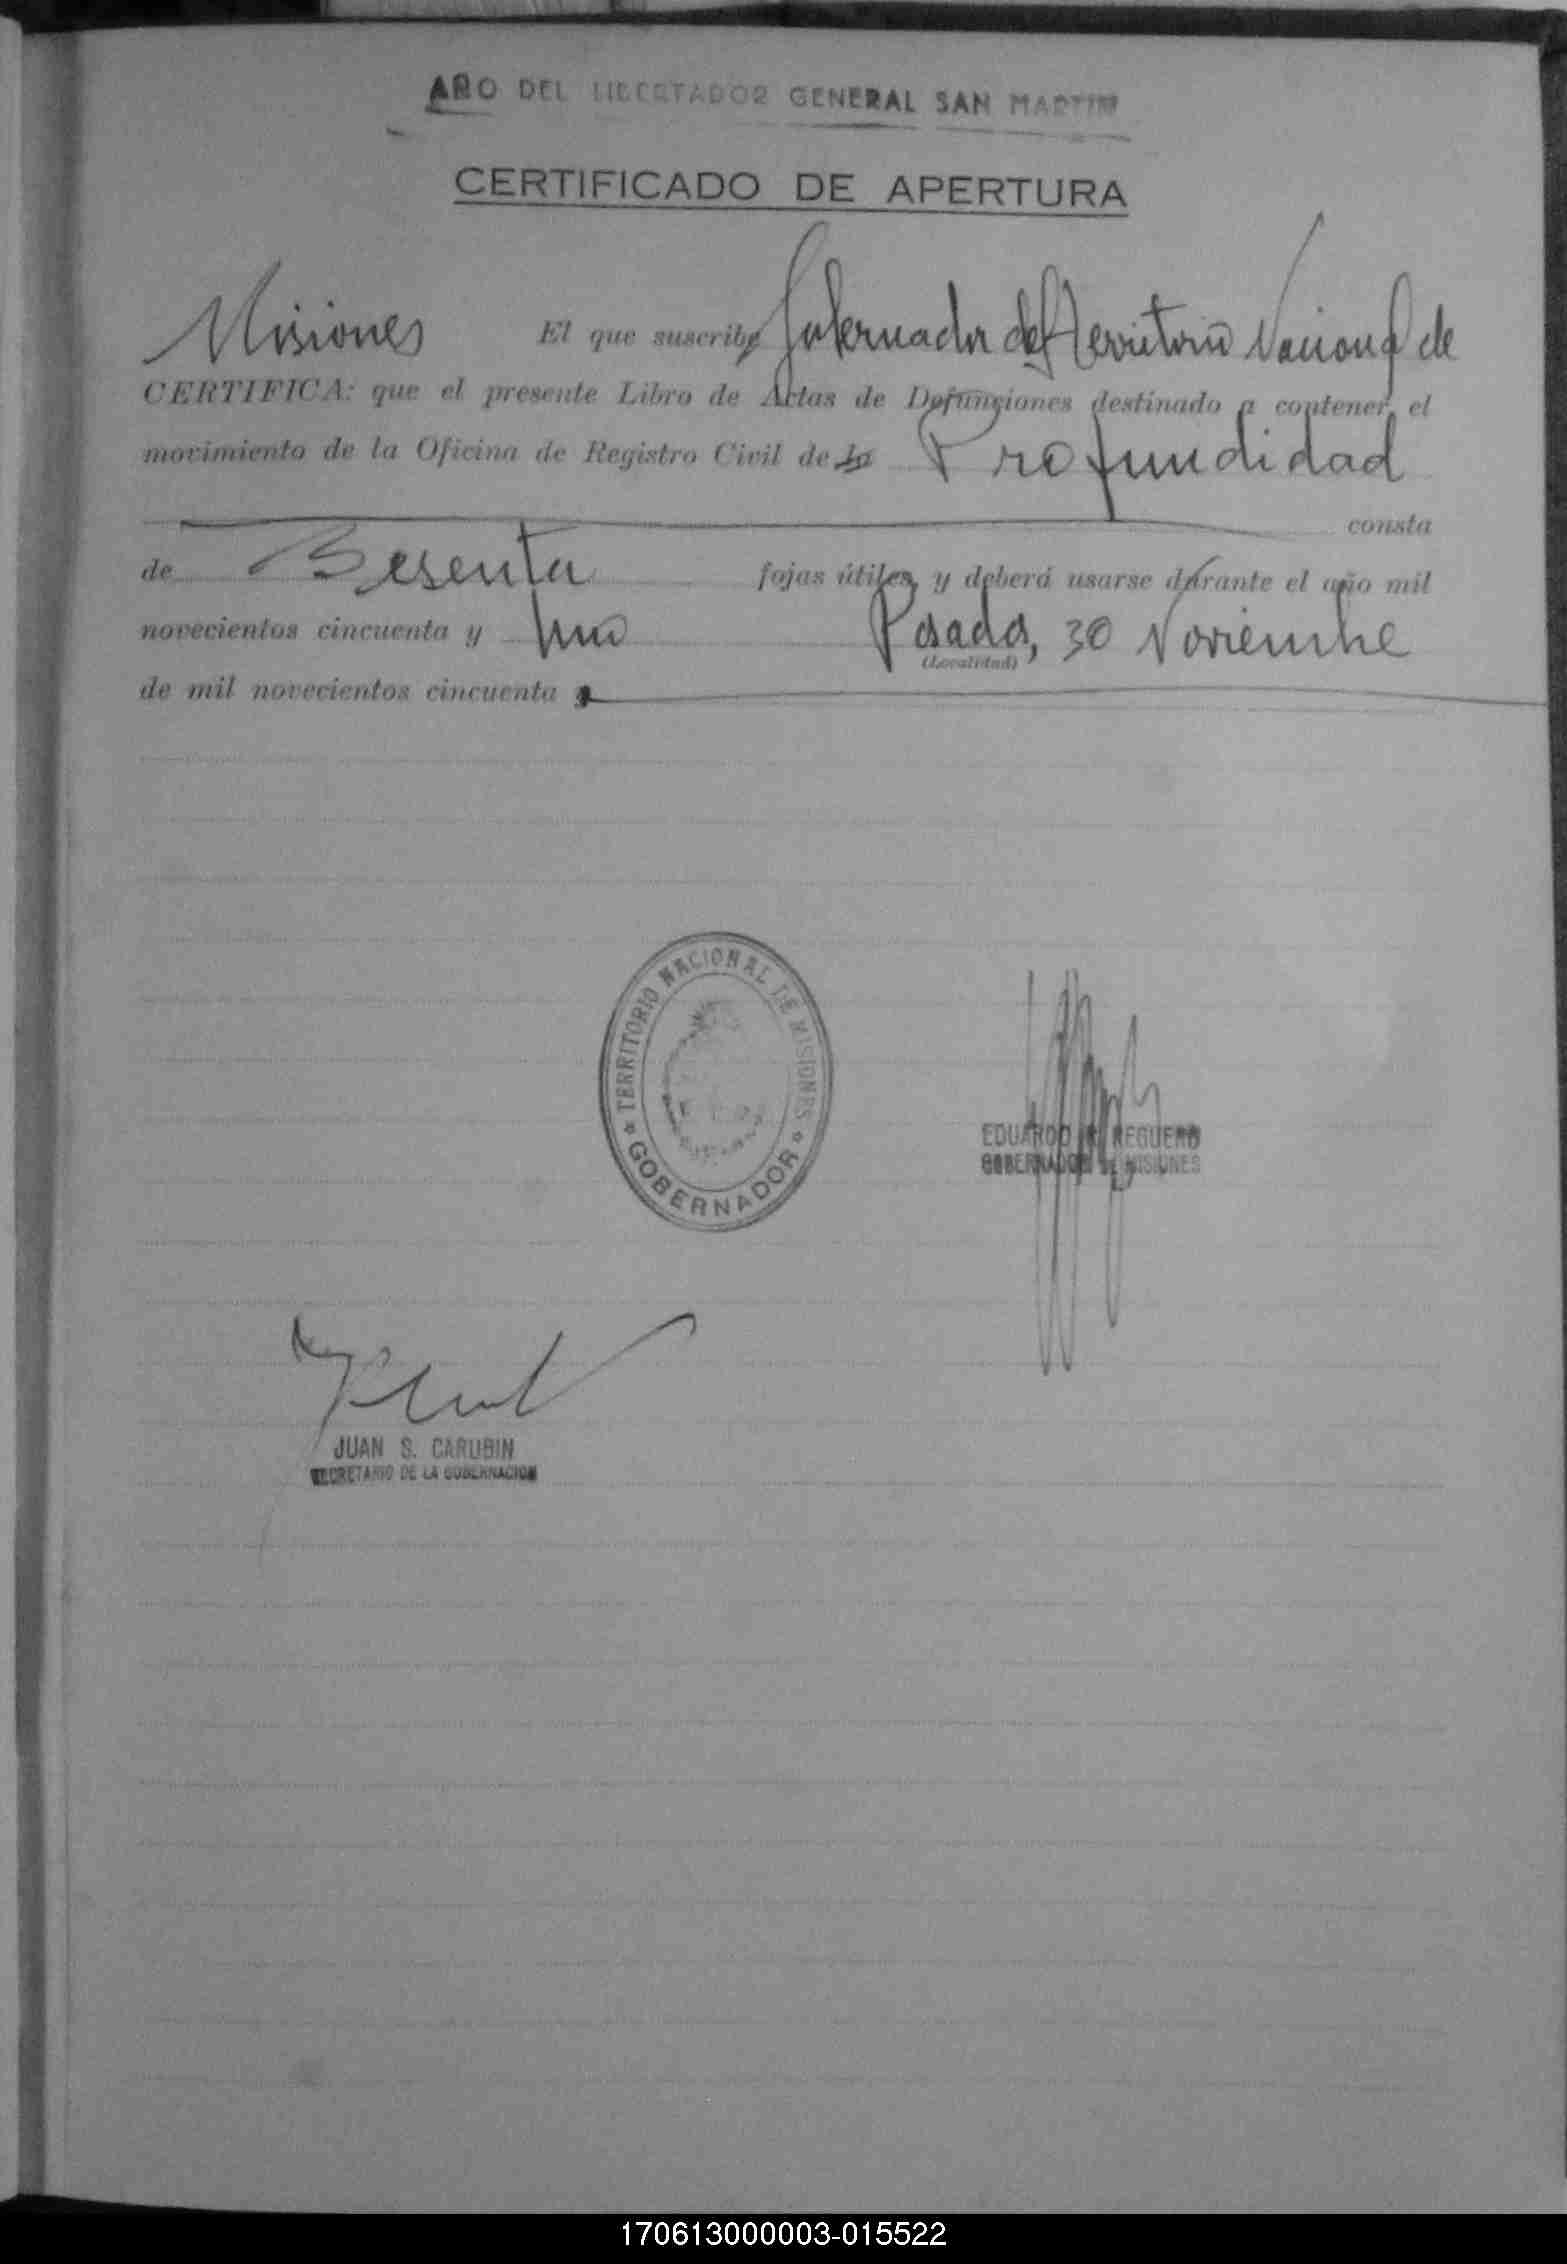 AÑO DEL LIBERTADOR GENERAL SAN MARTIN
CERTIFICADO DE APERTURA
Misiones El que suscribe Gobernador del Territorio Nacional de
CERTIFICA: que el presente Libro de Actas de Defunciones destinado a contener el
movimiento de la Oficina de Registro Civil de la Profundidad
consta
de Sesenta fojas útiles, y deberá usarse durante el año mil
novecientos cincuenta y uno Posadas, 30 Noviembre
(Localidad)
de mil novecientos cincuenta
* TERRITORIO NACIONAL DE MISIONES *
GOBERNADOR
EDUARDO REGUERO
GOBERNADOR DE MISIONES
JUAN S. CARUBIN
SECRETARIO DE LA GOBERNACION
170613000003-015522